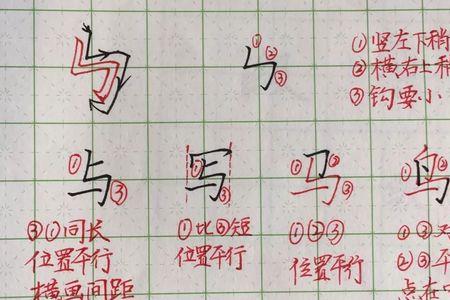 ①竖左下稍
②横右上稍
③钩要小
与 写 吗 鸟
③①同长
位置平行
横画间距
①比③短
位置平行
①②③
位置平行
①③
②③平
点在